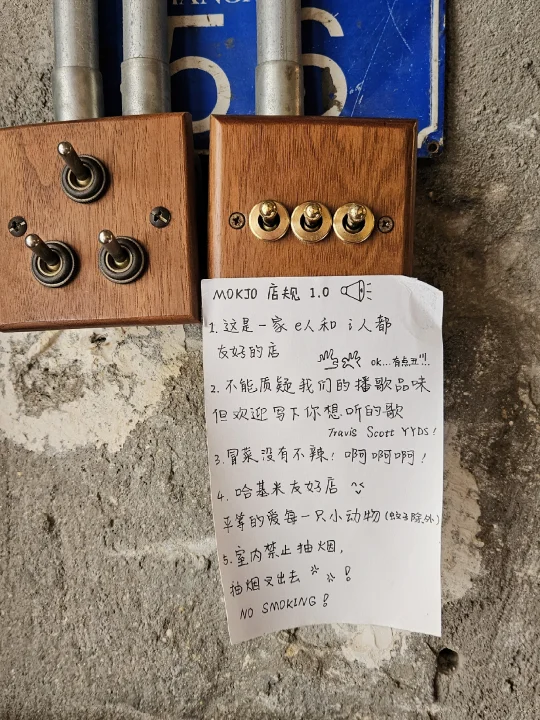 56
MOKJO 店规 1.0
1. 这是一家 e人和 i人都
友好的店
ok...有点丑!!!
2. 不能质疑我们的播歌品味
但欢迎写下你想听的歌
Travis Scott YYDS!
3. 冒菜没有不辣! 啊啊啊!
4. 哈基米友好店
平等的爱每一只小动物(蚊子除外)
5. 室内禁止抽烟,
抽烟叉出去 !
NO SMOKING!